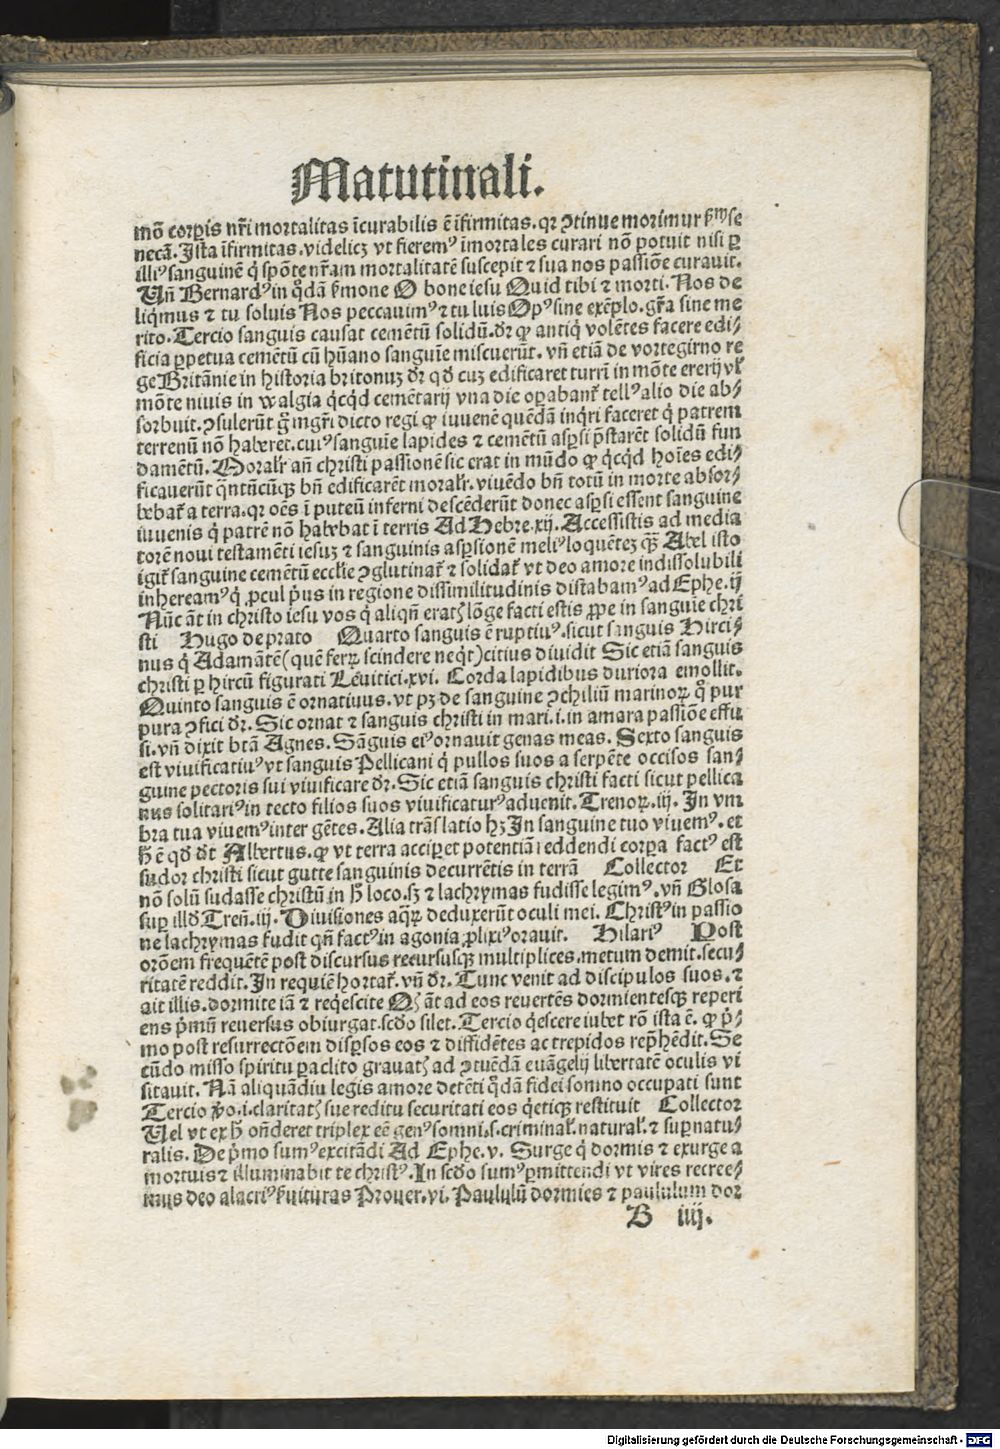 Matutinali.
mō corpis nr̄i mortalitas īcurabilis ē īfirmitas. qꝛ ꝯtinue morimur se
necā. Ista īfirmitas. videlicꝫ vt fieremꝰ īmortales curari nō potuit nisi ꝑ
illiꝰ sanguinē q̇ spōte nr̄am mortalitatē suscepit ⁊ sua nos passiōe curauit.
Vn̄ Bernardꝰ in q̇dā ẜmone O bone iesu Quid tibi ⁊ morti. Nos de
liq̇mus ⁊ tu soluis Nos peccauimꝰ ⁊ tu luis Opꝰ sine exēplo. gr̄a sine me
rito. Tercio sanguis causat cemētū solidū. dr̄ ꝙ antiq̇ volētes facere edi⸗
ficia ꝑpetua cemētū cū hūano sanguīe miscuerūt. vn̄ etiā de vortegirno re
ge Britānie in historia britonuꝫ dr̄ qd̄ cuꝫ edificaret turrī in mōte ererij vl̓
mōte niuis in walgia q̇cq̇d cemētarij vna die oꝑabant᷑ tellꝰ alio die ab⸗
sorbuit. ꝯsulerūt g̊ mgr̄i dicto regi ꝙ iuuenē quēdā inq̇ri faceret q̇ patrem
terrenū nō haberet. cuiꝰ sanguīe lapides ⁊ cemētū asꝑsi p̄starēt solidū fun
damētū. Moralr̓ an̄ christi passionē sic erat in mūdo ꝙ q̇cq̇d hoīes edi⸗
ficauerūt q̄ntūcūqꝫ bn̄ edificarēt moralr̓. viuēdo bn̄ totū in morte absor⸗
bebat᷑ a terra. qꝛ oēs ī puteū inferni descēderūt donec asꝑsi essent sanguine
iuuenis q̇ patrē nō habebat ī terris Ad Hebre. xij. Accessistis ad media
torē noui testamēti iesuꝫ ⁊ sanguinis asꝑsionē meliꝰ loquēteꝫ q̄ꝫ Abel isto
igit᷑ sanguine cemētū eccl̓ie ꝯglutinat᷑ ⁊ solidat᷑ vt deo amore indissolubili
inhereamꝰ q̇ ꝓcul pꝰus in regione dissimilitudinis distabamꝰ ad Ephe. ij
Nūc āt in christo iesu vos q̇ aliqn̄ eratꝭ lōge facti estis ꝓpe in sanguīe chri
sti Hugo de prato Quarto sanguis ē ruptiuꝰ. sicut sanguis Hirci⸗
nus q̇ Adamātē (quē ferꝝ scindere neq̇t) citius diuidit Sic etiā sanguis
christi ꝑ hircū figurati Leuitici. xvi. Corda lapidibus duriora emollit.
Quinto sanguis ē ornatiuus. vt pꝫ de sanguine ꝯchiliū marinoꝝ q̊ pur
pura ꝯfici dr̄. Sic ornat ⁊ sanguis christi in mari. i. in amara passiōe effu
si. vn̄ dixit btā Agnes. Sāguis eiꝰ ornauit genas meas. Sexto sanguis
est viuificatiuꝰ vt sanguis Pellicani q̇ pullos suos a serpēte occisos san⸗
guine pectoris sui viuificare dr̄. Sic etiā sanguis christi facti sicut pellica
nus solitariꝰ in tecto filios suos viuificaturꝰ aduenit. Trenoꝝ. iij. In vm
bra tua viuemꝰ inter gētes. Alia trāslatio hꝫ In sanguine tuo viuemꝰ. et
h̄ ē qd̄ dt̄ Albertus. ꝙ vt terra acciꝑet potentiā reddendi corpa factꝰ est
sudor christi sicut gutte sanguinis decurrētis in terrā Collector Et
nō solū sudasse christū in h̄ loco. sꝫ ⁊ lachrymas fudisse legimꝰ. vn̄ Glosa
suꝑ illd̄ Treñ. iij. Diuisiones aq̄ꝝ deduxerūt oculi mei. Christꝰ in passio
ne lachrymas fudit qn̄ factꝰ in agonia ꝓlixiꝰ orauit. Hilariꝰ Post
orōem frequētē post discursus recursusqꝫ multiplices. metum demit. secu⸗
ritatē reddit. In requiē hortat᷑. vn̄ dr̄. Tunc venit ad discipulos suos. ⁊
ait illis. dormite iā ⁊ reqescite Qꝭ āt ad eos reuertēs dormientesqꝫ reperi
ens p̄mū reuersus obiurgat. scdo silet. Tercio q̇escere iubet rō ista ē. ꝙ p̄⸗
mo post resurrectōem disꝑsos eos ⁊ diffidētes ac trepidos repꝛhēdit. Se
cūdo misso spiritu ꝑaclito grauatꝭ ad ꝯtuēdā euāgelij libertatē oculis vi
sitauit. Nā aliquādiu legis amore detēti q̇dā fidei somno occupati sunt
Tercio ꝟo. i. claritatꝭ sue reditu securitati eos q̇etiqꝫ restituit Collector
Uel vt ex h̄ on̄deret triplex eē genꝰ somni. s. criminal̓. natural̓. ⁊ suꝑnatu⸗
ralis. De p̄mo sumꝰ excitādi Ad Ephe. v. Surge q̇ dormis ⁊ exurge a
mortuis ⁊ illuminabit te christꝰ. In scdo sumꝰ ꝑmittendi vt vires recree⸗
mus deo alacriꝰ ẜuituras Prouer. vi. Paululū dormies ⁊ paululum dor
B iiij.
Digitalisierung gefördert durch die Deutsche Forschungsgemeinschaft - DFG